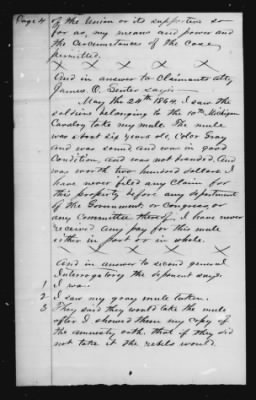 Page 4
of the Union or its supporters so
far as my means and power and
the circumstances of the case
permitted.
X X X X X
And in answer to Claimants atty
James. O. Senter says—
May the 24th 1864. I saw the
soldiers belonging to the 10th Michigan
Cavalry take my mule. This mule
was about six years old, Color Gray
and was sound, and was in good
Condition, And was not branded. And
was worth two hundred dollars. I
have never filed any Claim for
this property before any department
of the Government or Congress, or
any Committee thereof. I have never
received any pay for this mule
either in part or in whole.
X X X X X
And in answer to second general
Interrogatory the deponent says.
1 I was.
2 I saw my gray mule taken.
3 They said they would take the mule
after I showed them my copy of
the amnesty oath. that if they did
not take it the rebels would.